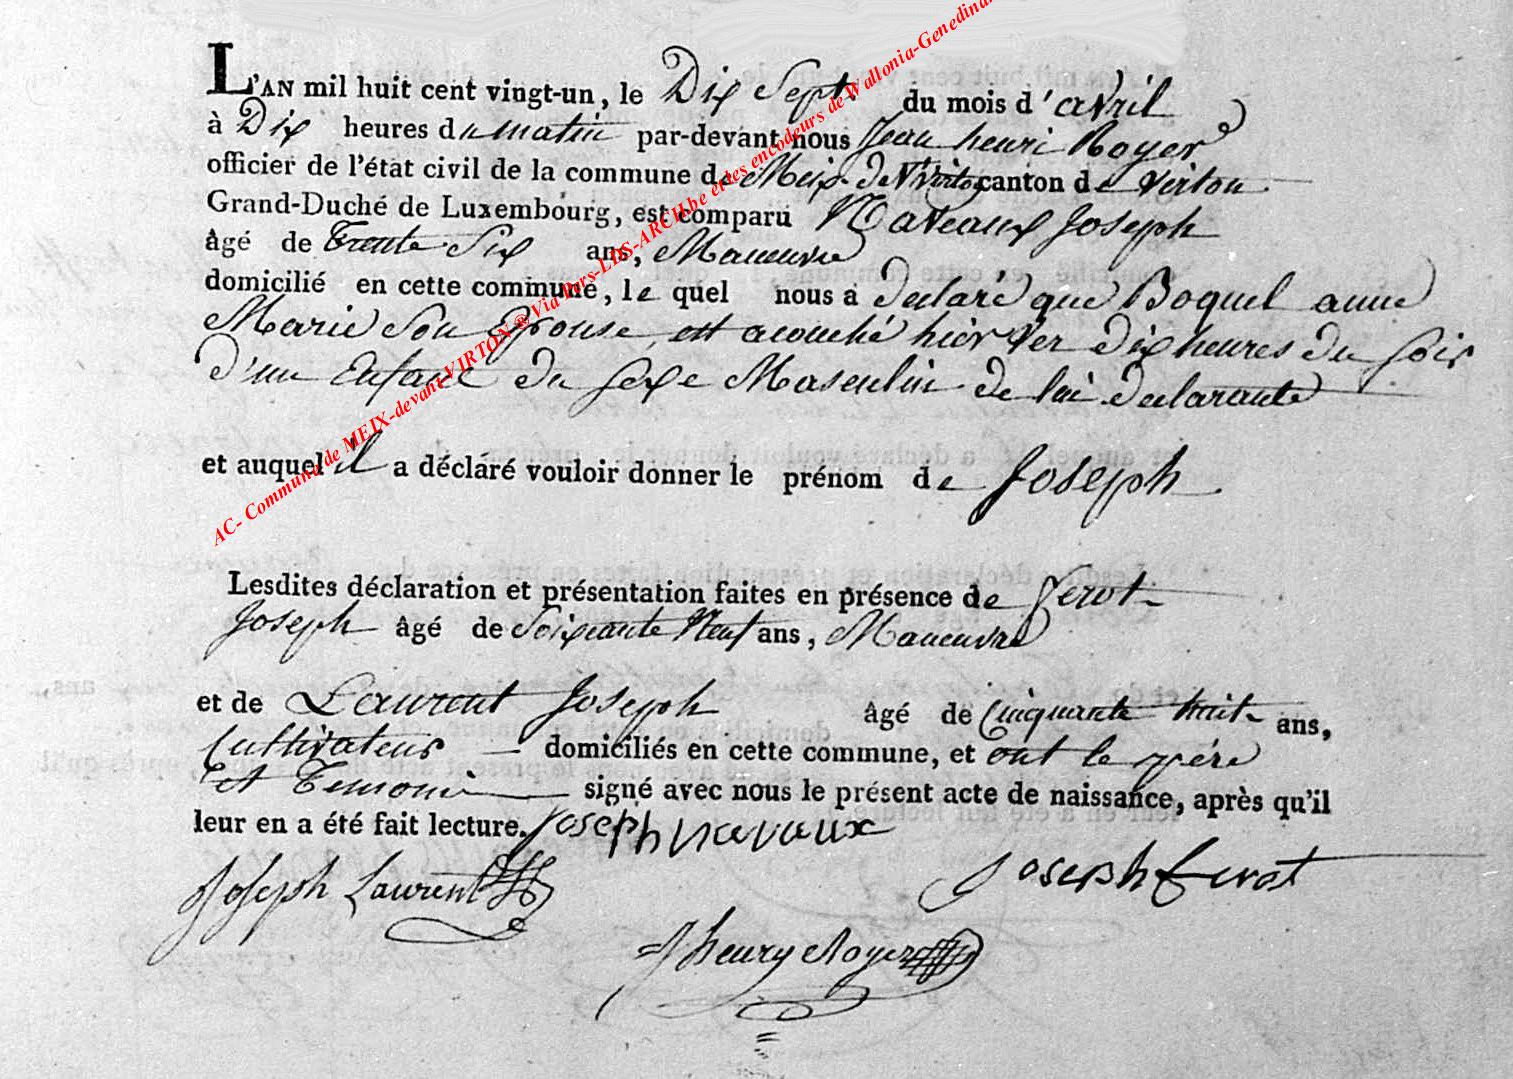 L'AN mil huit cent vingt-un, le Dix Sept du mois d'avril
à Dix heures du matin par-devant nous Jean henri Royer
officier de l'état civil de la commune de Meix-de Virton canton de Virton
Grand-Duché de Luxembourg, est comparu Navaux Joseph
âgé de Trente Six ans, Maneuvre
domicilié en cette commune, le quel nous a declaré que Boquel anne
Marie Son Epouse, est acouché hier ver dix heures du soir
d'un Enfant du sexe Masculin de lui declarante
et auquel il a déclaré vouloir donner le prénom de Joseph
Lesdites déclaration et présentation faites en présence de Gerot
Joseph âgé de Soixante Neuf ans, Maneuvre
et de Laurent Joseph âgé de Cinquante huit ans,
Cultivateur domiciliés en cette commune, et ont le père
et Temoin signé avec nous le présent acte de naissance, après qu'il
leur en a été fait lecture. Joseph navaux
Joseph Laurent Joseph Gerot
J henry Royer
AC- Commune de MEIX-devant-VIRTON ® Via Pers-LDS-ARCH.be et les encodeurs de Wallonia-Genedinan